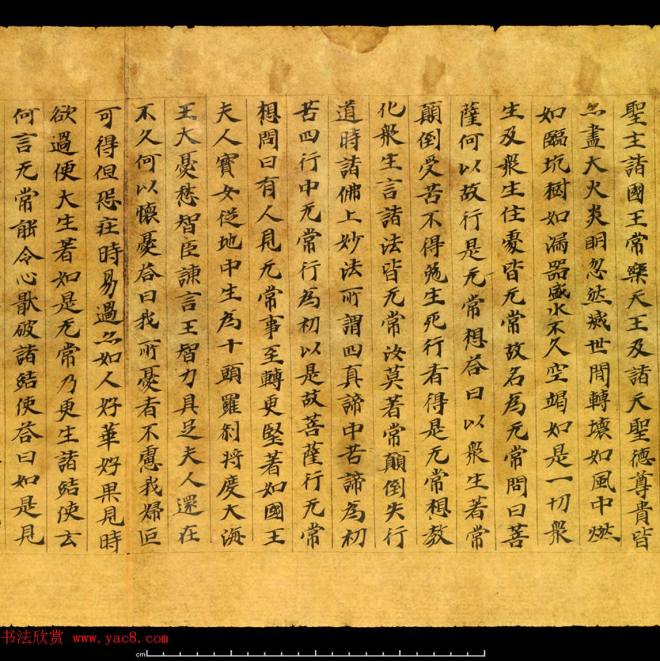 聖主諸國王常樂天王及諸天聖德尊貴皆
亡盡大火炎明忽然滅世間轉壞如風中燃
如臨坑樹如漏器盛水不久空竭如是一切衆
生及衆生住處皆无常故名為无常問曰菩
薩何以故行是无常想荅曰以衆生著常
顛倒受苦不得免生死行者得是无常想教
化衆生言諸法皆无常汝莫著常顛倒失行
道時諸佛上妙法所謂四真諦中苦諦為初
苦四行中无常行為初以是故菩薩行无常
想問曰有人見无常事至轉更堅著如國王
夫人寶女從地中生為十頭羅剎將度大海
王大憂愁智臣諫言王智力具足夫人還在
不久何以懷憂荅曰我所憂者不慮我婦叵
可得但恐壯時易過亦如人好華好果見時
欲過便大生著如是无常乃更生諸結使云
何言无常能令心猒破諸結使荅曰如是見
书法欣赏 www.yac8.com
cm